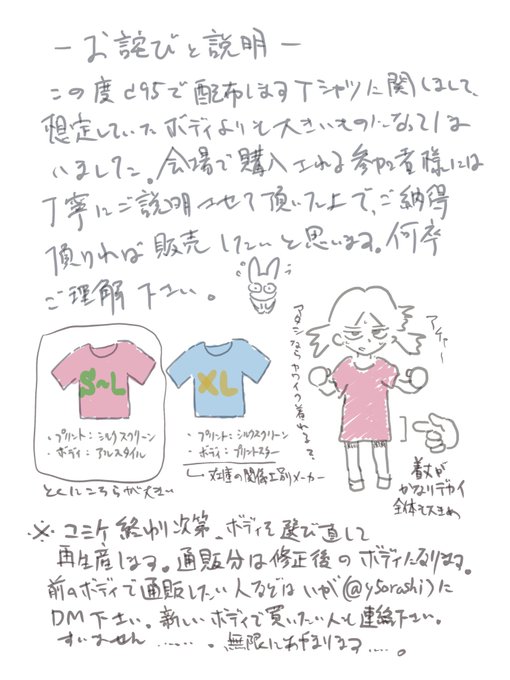 －お詫びと説明－
この度c95で配布しますTシャツに関しまして、
想定していたボディよりも大きいものになってしま
いました。会場で購入される参加者様には
丁寧にご説明させて頂いた上で、ご納得
頂ければ販売したいと思います。何卒
ご理解下さい。
S~L
・プリント：シルクスクリーン
・ボディ：アルスタイル
とくにこちらが大きい
XL
・プリント：シルクスクリーン
・ボディ：プリントスター
在庫の関係上別メーカー
アタシならカワイク着れる
アチャー
着丈が
かなりデカイ
全体も大きめ
※コミケ終わり次第、ボディを選び直して
再生産します。通販分は修正後のボディになります。
前のボディで通販したい人などは (@ysorashi)に
DM下さい。新しいボディで買いたい人も連絡下さい。
すいません……。無限にあやまります…。